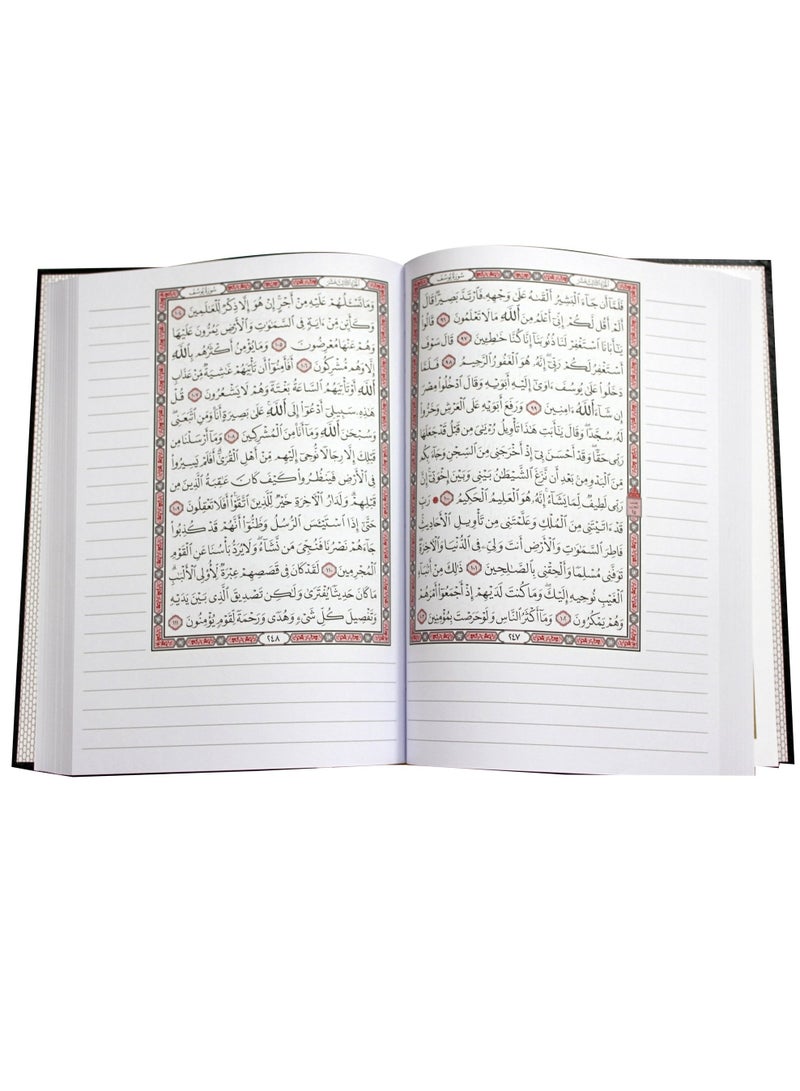 سُورَةُ يُوسُفَ
الجُزءُ الثَّالِثَ عَشَرَ
فَلَمَّآ أَن جَآءَ ٱلْبَشِيرُ أَلْقَىٰهُ عَلَىٰ وَجْهِهِۦ فَٱرْتَدَّ بَصِيرًا ۖ قَالَ
أَلَمْ أَقُل لَّكُمْ إِنِّىٓ أَعْلَمُ مِنَ ٱللَّهِ مَا لَا تَعْلَمُونَ ٩٦ قَالُوا۟
يَٰٓأَبَانَا ٱسْتَغْفِرْ لَنَا ذُنُوبَنَآ إِنَّا كُنَّا خَٰطِـِٔينَ ٩٧ قَالَ سَوْفَ
أَسْتَغْفِرُ لَكُمْ رَبِّىٓ ۖ إِنَّهُۥ هُوَ ٱلْغَفُورُ ٱلرَّحِيمُ ٩٨ فَلَمَّا
دَخَلُوا۟ عَلَىٰ يُوسُفَ ءَاوَىٰٓ إِلَيْهِ أَبَوَيْهِ وَقَالَ ٱدْخُلُوا۟ مِصْرَ
إِن شَآءَ ٱللَّهُ ءَامِنِينَ ٩٩ وَرَفَعَ أَبَوَيْهِ عَلَى ٱلْعَرْشِ وَخَرُّوا۟
لَهُۥ سُجَّدًا ۖ وَقَالَ يَٰٓأَبَتِ هَٰذَا تَأْوِيلُ رُءْيَٰىَ مِن قَبْلُ قَدْ جَعَلَهَا
رَبِّى حَقًّا ۖ وَقَدْ أَحْسَنَ بِىٓ إِذْ أَخْرَجَنِى مِنَ ٱلسِّجْنِ وَجَآءَ بِكُم
مِّنَ ٱلْبَدْوِ مِنۢ بَعْدِ أَن نَّزَغَ ٱلشَّيْطَٰنُ بَيْنِى وَبَيْنَ إِخْوَتِىٓ ۚ إِنَّ
رَبِّى لَطِيفٌ لِّمَا يَشَآءُ ۚ إِنَّهُۥ هُوَ ٱلْعَلِيمُ ٱلْحَكِيمُ ١٠٠ رَبِّ
قَدْ ءَاتَيْتَنِى مِنَ ٱلْمُلْكِ وَعَلَّمْتَنِى مِن تَأْوِيلِ ٱلْأَحَادِيثِ ۚ
فَاطِرَ ٱلسَّمَٰوَٰتِ وَٱلْأَرْضِ أَنتَ وَلِىِّۦ فِى ٱلدُّنْيَا وَٱلْءَاخِرَةِ ۖ
تَوَفَّنِى مُسْلِمًا وَأَلْحِقْنِى بِٱلصَّٰلِحِينَ ١٠١ ذَٰلِكَ مِنْ أَنۢبَآءِ
ٱلْغَيْبِ نُوحِيهِ إِلَيْكَ ۖ وَمَا كُنتَ لَدَيْهِمْ إِذْ أَجْمَعُوٓا۟ أَمْرَهُمْ
وَهُمْ يَمْكُرُونَ ١٠٢ وَمَآ أَكْثَرُ ٱلنَّاسِ وَلَوْ حَرَصْتَ بِمُؤْمِنِينَ ١٠٣
٢٤٧
سُورَةُ يُوسُفَ
الجُزءُ الثَّالِثَ عَشَرَ
وَمَا تَسْـَٔلُهُمْ عَلَيْهِ مِنْ أَجْرٍ ۚ إِنْ هُوَ إِلَّا ذِكْرٌ لِّلْعَٰلَمِينَ ١٠٤
وَكَأَيِّن مِّنْ ءَايَةٍ فِى ٱلسَّمَٰوَٰتِ وَٱلْأَرْضِ يَمُرُّونَ عَلَيْهَا
وَهُمْ عَنْهَا مُعْرِضُونَ ١٠٥ وَمَا يُؤْمِنُ أَكْثَرُهُم بِٱللَّهِ
إِلَّا وَهُم مُّشْرِكُونَ ١٠٦ أَفَأَمِنُوٓا۟ أَن تَأْتِيَهُمْ غَٰشِيَةٌ مِّنْ عَذَابِ
ٱللَّهِ أَوْ تَأْتِيَهُمُ ٱلسَّاعَةُ بَغْتَةً وَهُمْ لَا يَشْعُرُونَ ١٠٧ قُلْ
هَٰذِهِۦ سَبِيلِىٓ أَدْعُوٓا۟ إِلَى ٱللَّهِ ۚ عَلَىٰ بَصِيرَةٍ أَنَا۠ وَمَنِ ٱتَّبَعَنِى ۖ
وَسُبْحَٰنَ ٱللَّهِ وَمَآ أَنَا۠ مِنَ ٱلْمُشْرِكِينَ ١٠٨ وَمَآ أَرْسَلْنَا مِن
قَبْلِكَ إِلَّا رِجَالًا نُّوحِىٓ إِلَيْهِم مِّنْ أَهْلِ ٱلْقُرَىٰٓ ۗ أَفَلَمْ يَسِيرُوا۟
فِى ٱلْأَرْضِ فَيَنظُرُوا۟ كَيْفَ كَانَ عَٰقِبَةُ ٱلَّذِينَ مِن
قَبْلِهِمْ ۗ وَلَدَارُ ٱلْءَاخِرَةِ خَيْرٌ لِّلَّذِينَ ٱتَّقَوْا۟ ۗ أَفَلَا تَعْقِلُونَ ١٠٩
حَتَّىٰٓ إِذَا ٱسْتَيْـَٔسَ ٱلرُّسُلُ وَظَنُّوٓا۟ أَنَّهُمْ قَدْ كُذِبُوا۟
جَآءَهُمْ نَصْرُنَا فَنُجِّىَ مَن نَّشَآءُ ۖ وَلَا يُرَدُّ بَأْسُنَا عَنِ ٱلْقَوْمِ
ٱلْمُجْرِمِينَ ١١٠ لَقَدْ كَانَ فِى قَصَصِهِمْ عِبْرَةٌ لِّأُو۟لِى ٱلْأَلْبَٰبِ ۗ
مَا كَانَ حَدِيثًا يُفْتَرَىٰ وَلَٰكِن تَصْدِيقَ ٱلَّذِى بَيْنَ يَدَيْهِ
وَتَفْصِيلَ كُلِّ شَىْءٍ وَهُدًى وَرَحْمَةً لِّقَوْمٍ يُؤْمِنُونَ ١١١
٢٤٨